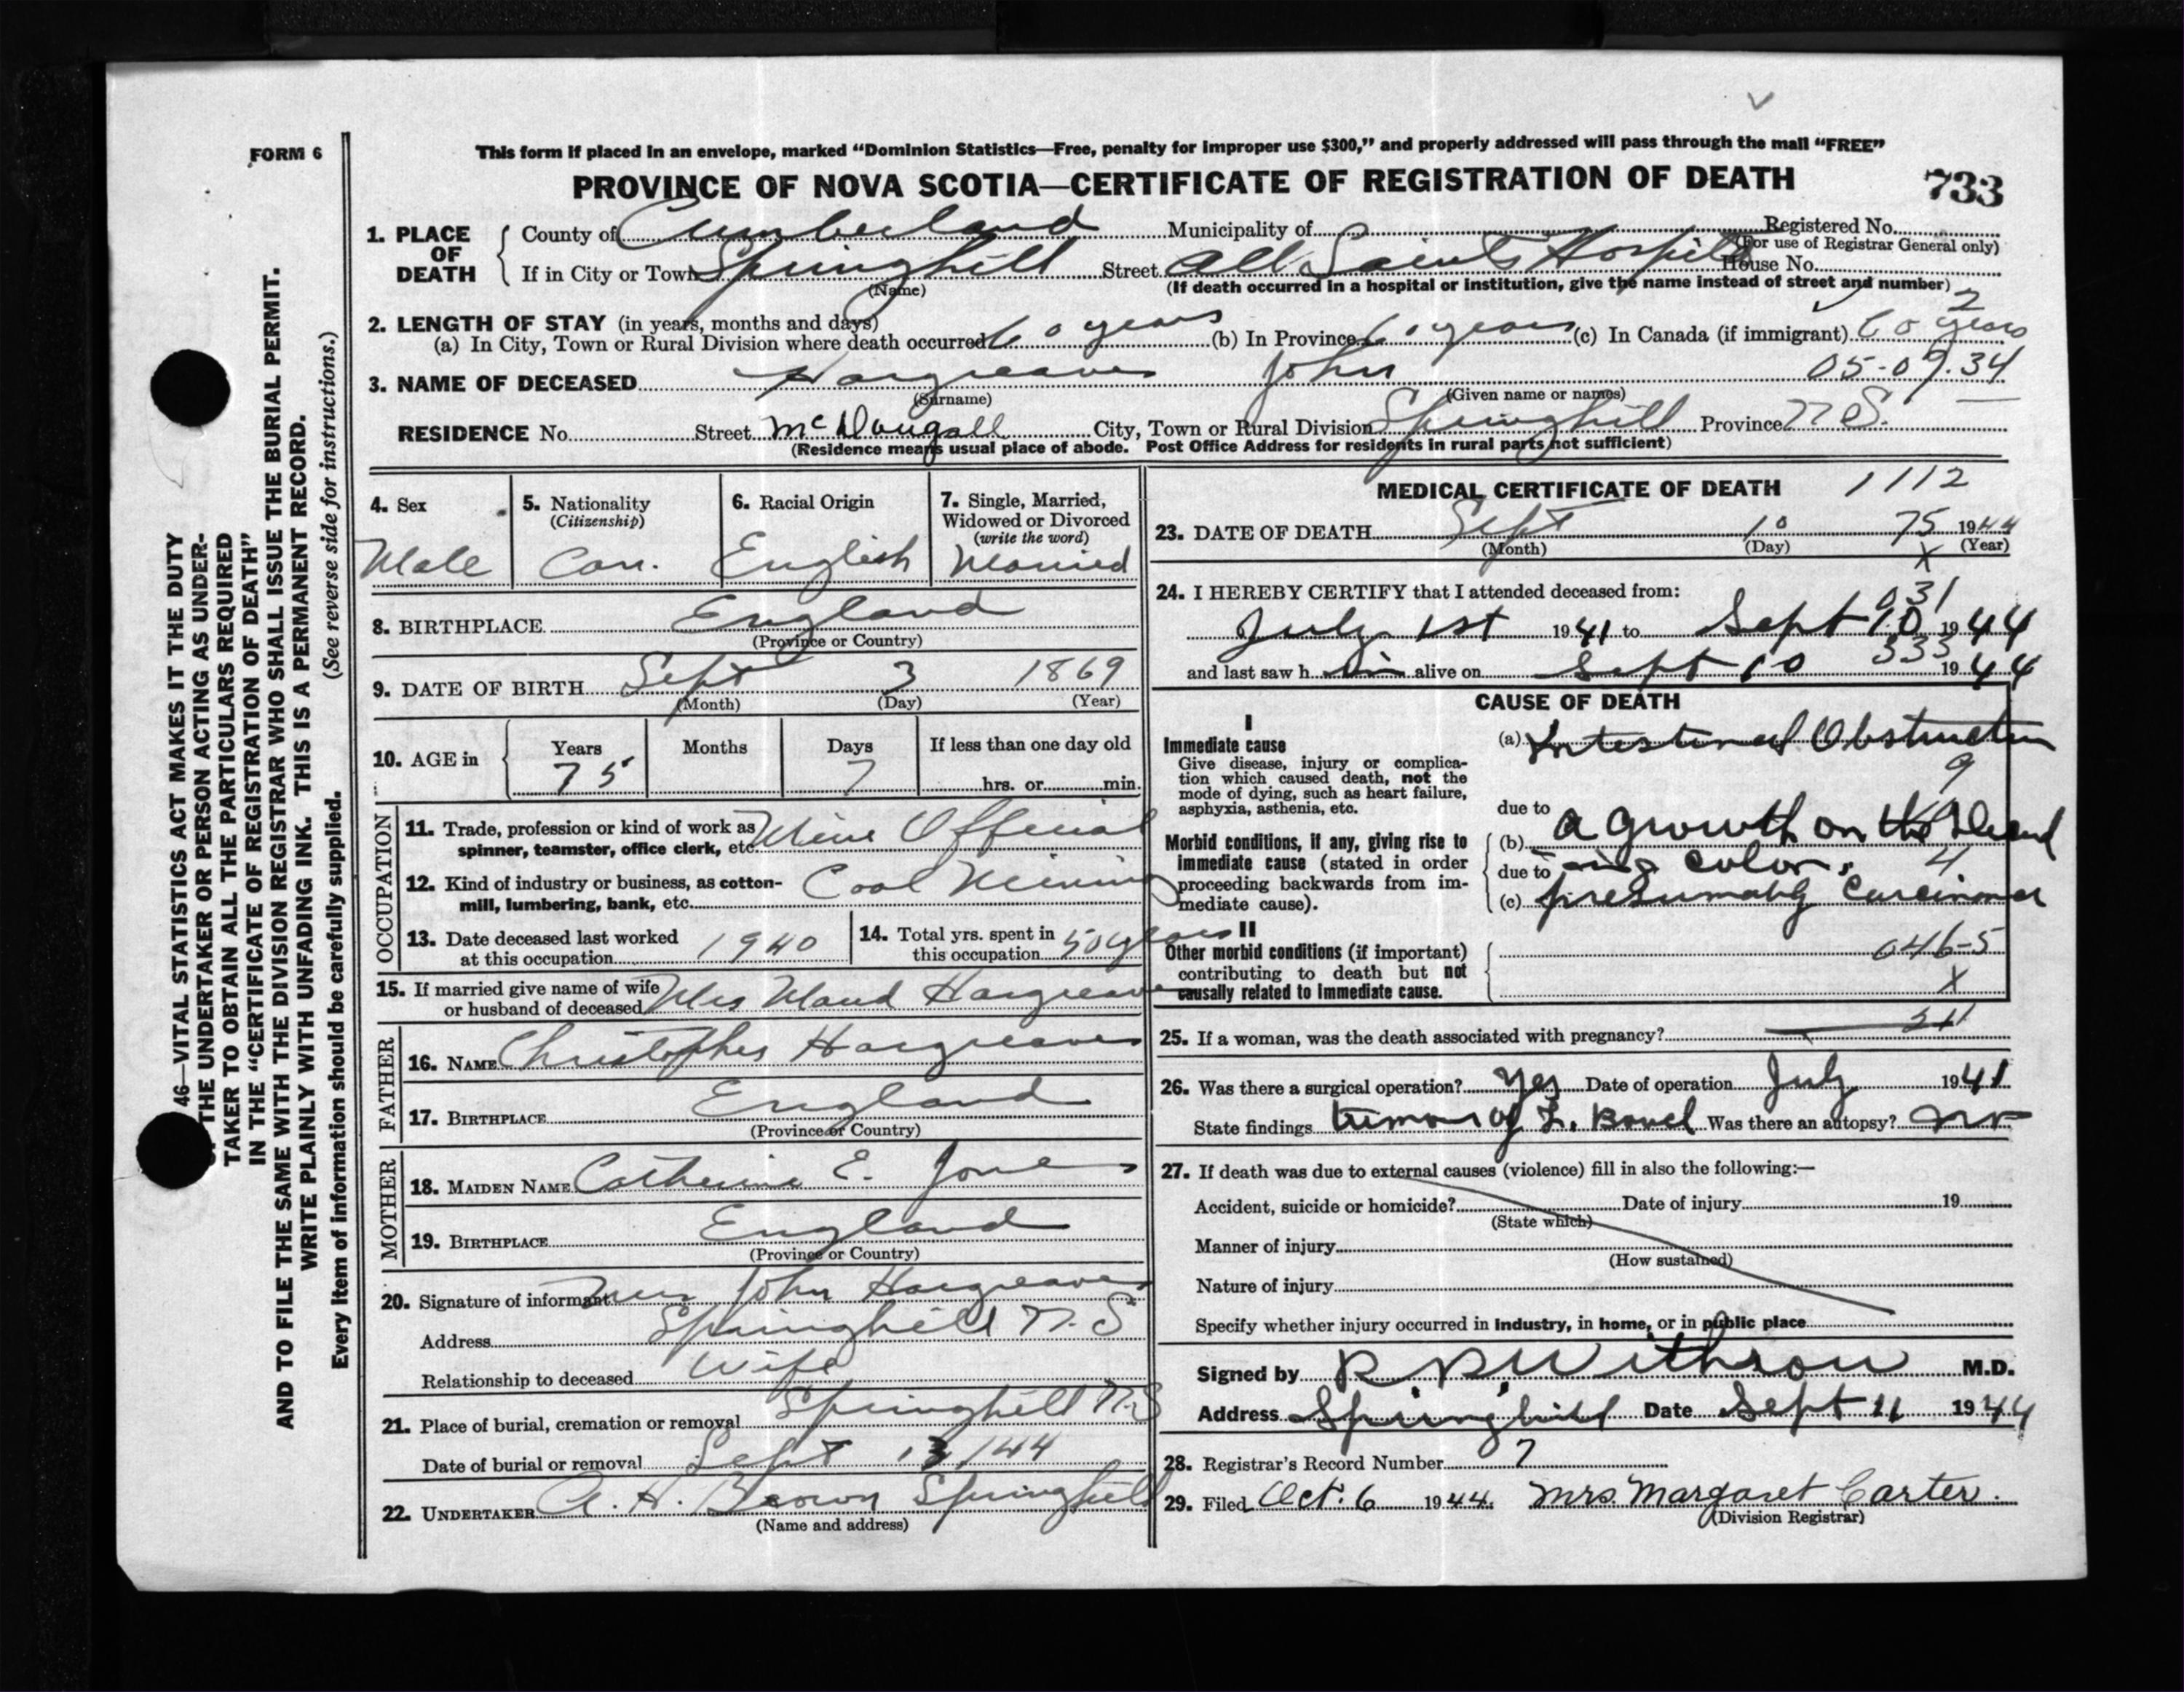 FORM 6
This form if placed in an envelope, marked “Dominion Statistics—Free, penalty for improper use $300,” and properly addressed will pass through the mail “FREE”
PROVINCE OF NOVA SCOTIA—CERTIFICATE OF REGISTRATION OF DEATH
733
1. PLACE OF DEATH
County of Cumberland Municipality of Registered No.
(For use of Registrar General only)
If in City or Town Springhill Street All Saints Hospital House No.
(Name) (If death occurred in a hospital or institution, give the name instead of street and number)
2. LENGTH OF STAY (in years, months and days) 2
(a) In City, Town or Rural Division where death occurred 60 years (b) In Province 60 years (c) In Canada (if immigrant) 60 years
3. NAME OF DECEASED Hargreaves John 05-09.34
(Surname) (Given name or names)
RESIDENCE No. Street McDougall City, Town or Rural Division Springhill Province N.S.
(Residence means usual place of abode. Post Office Address for residents in rural parts not sufficient)
4. Sex Male
5. Nationality (Citizenship) Can.
6. Racial Origin English
7. Single, Married, Widowed or Divorced (write the word) Married
8. BIRTHPLACE England
(Province or Country)
9. DATE OF BIRTH Sept 3 1869
(Month) (Day) (Year)
10. AGE in Years 75 Months Days 7 If less than one day old hrs. or min.
OCCUPATION
11. Trade, profession or kind of work as spinner, teamster, office clerk, etc. Mine Official
12. Kind of industry or business, as cotton-mill, lumbering, bank, etc. Coal Mining
13. Date deceased last worked at this occupation 1940
14. Total yrs. spent in this occupation 50 years
15. If married give name of wife or husband of deceased Mrs Maud Hargreaves
FATHER
16. NAME Christopher Hargreaves
17. BIRTHPLACE England
(Province or Country)
MOTHER
18. MAIDEN NAME Catherine E. Jones
19. BIRTHPLACE England
(Province or Country)
20. Signature of informant Mrs John Hargreaves
Address Springhill N.S
Relationship to deceased Wife
21. Place of burial, cremation or removal Springhill N.S
Date of burial or removal Sept 13/44
22. UNDERTAKER A. H. Brown Springhill
(Name and address)
MEDICAL CERTIFICATE OF DEATH 1112
23. DATE OF DEATH Sept 10 75 1944
(Month) (Day) X (Year)
24. I HEREBY CERTIFY that I attended deceased from:
031
July 1st 1941 to Sept 10 1944
333
and last saw him alive on Sept 10 1944
CAUSE OF DEATH
I
Immediate cause
Give disease, injury or complication which caused death, not the mode of dying, such as heart failure, asphyxia, asthenia, etc.
(a) Intestinal Obstruction
9
due to
Morbid conditions, if any, giving rise to immediate cause (stated in order proceeding backwards from immediate cause).
(b) a growth on the Decend
due to ing colon, 4
(c) presumably Carcinoma
II
Other morbid conditions (if important) contributing to death but not causally related to immediate cause.
046-5
X
25. If a woman, was the death associated with pregnancy?
26. Was there a surgical operation? Yes Date of operation July 1941
State findings tumor of L. Bowel Was there an autopsy? no
27. If death was due to external causes (violence) fill in also the following:—
Accident, suicide or homicide? Date of injury 19
(State which)
Manner of injury
(How sustained)
Nature of injury
Specify whether injury occurred in industry, in home, or in public place
Signed by R B Withrow M.D.
Address Springhill Date Sept 11 1944
28. Registrar's Record Number 7
29. Filed Oct. 6 1944. Mrs. Margaret Carter.
(Division Registrar)
46—VITAL STATISTICS ACT MAKES IT THE DUTY
THE UNDERTAKER OR PERSON ACTING AS UNDER-
TAKER TO OBTAIN ALL THE PARTICULARS REQUIRED
IN THE “CERTIFICATE OF REGISTRATION OF DEATH”
AND TO FILE THE SAME WITH THE DIVISION REGISTRAR WHO SHALL ISSUE THE BURIAL PERMIT.
WRITE PLAINLY WITH UNFADING INK. THIS IS A PERMANENT RECORD.
Every item of information should be carefully supplied. (See reverse side for instructions.)